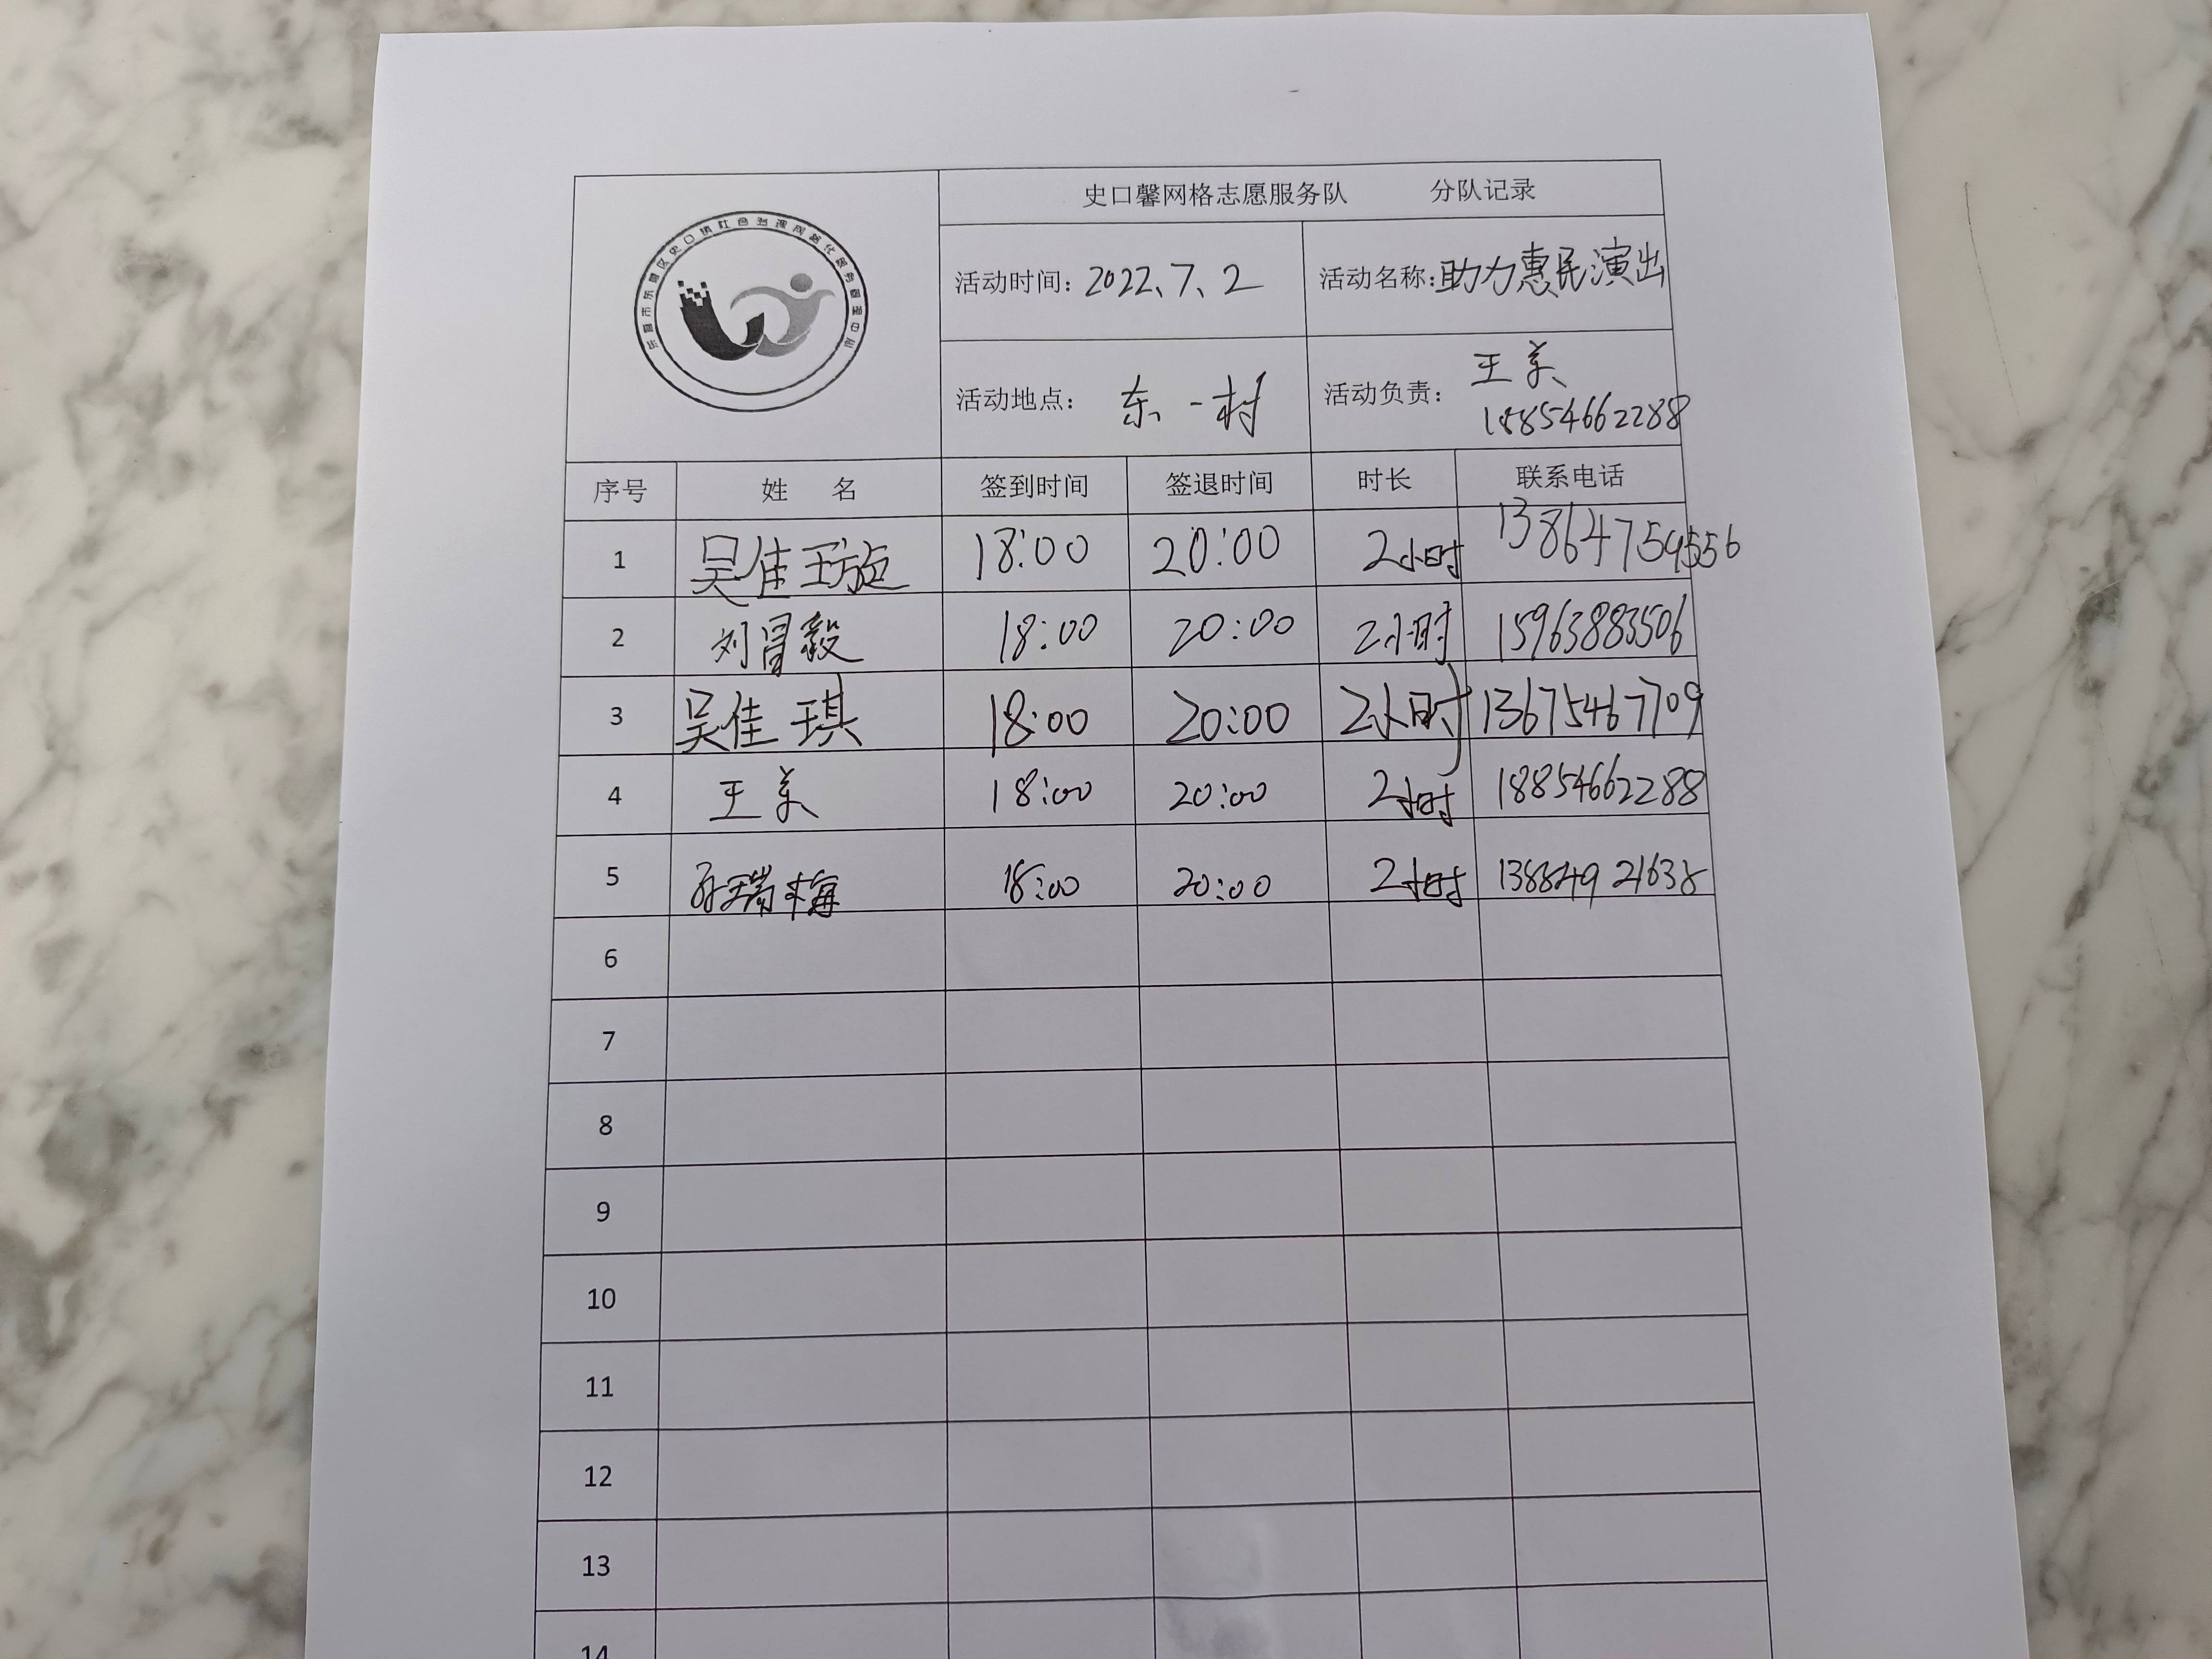 东营市东营区史口镇社会治理网格化服务管理中心
史口馨网格志愿服务队 分队记录
活动时间：2022、7、2 活动名称：助力惠民演出
活动地点： 东一村 活动负责： 王美
18854662288
序号 姓 名 签到时间 签退时间 时长 联系电话
1 吴佳璇 18:00 20:00 2小时 13864754556
2 刘冒毅 18:00 20:00 2小时 15963883506
3 吴佳琪 18:00 20:00 2小时 13675467709
4 王美 18:00 20:00 2小时 18854662288
5 孙瑞梅 18:00 20:00 2小时
6
7
8
9
10
11
12
13
14